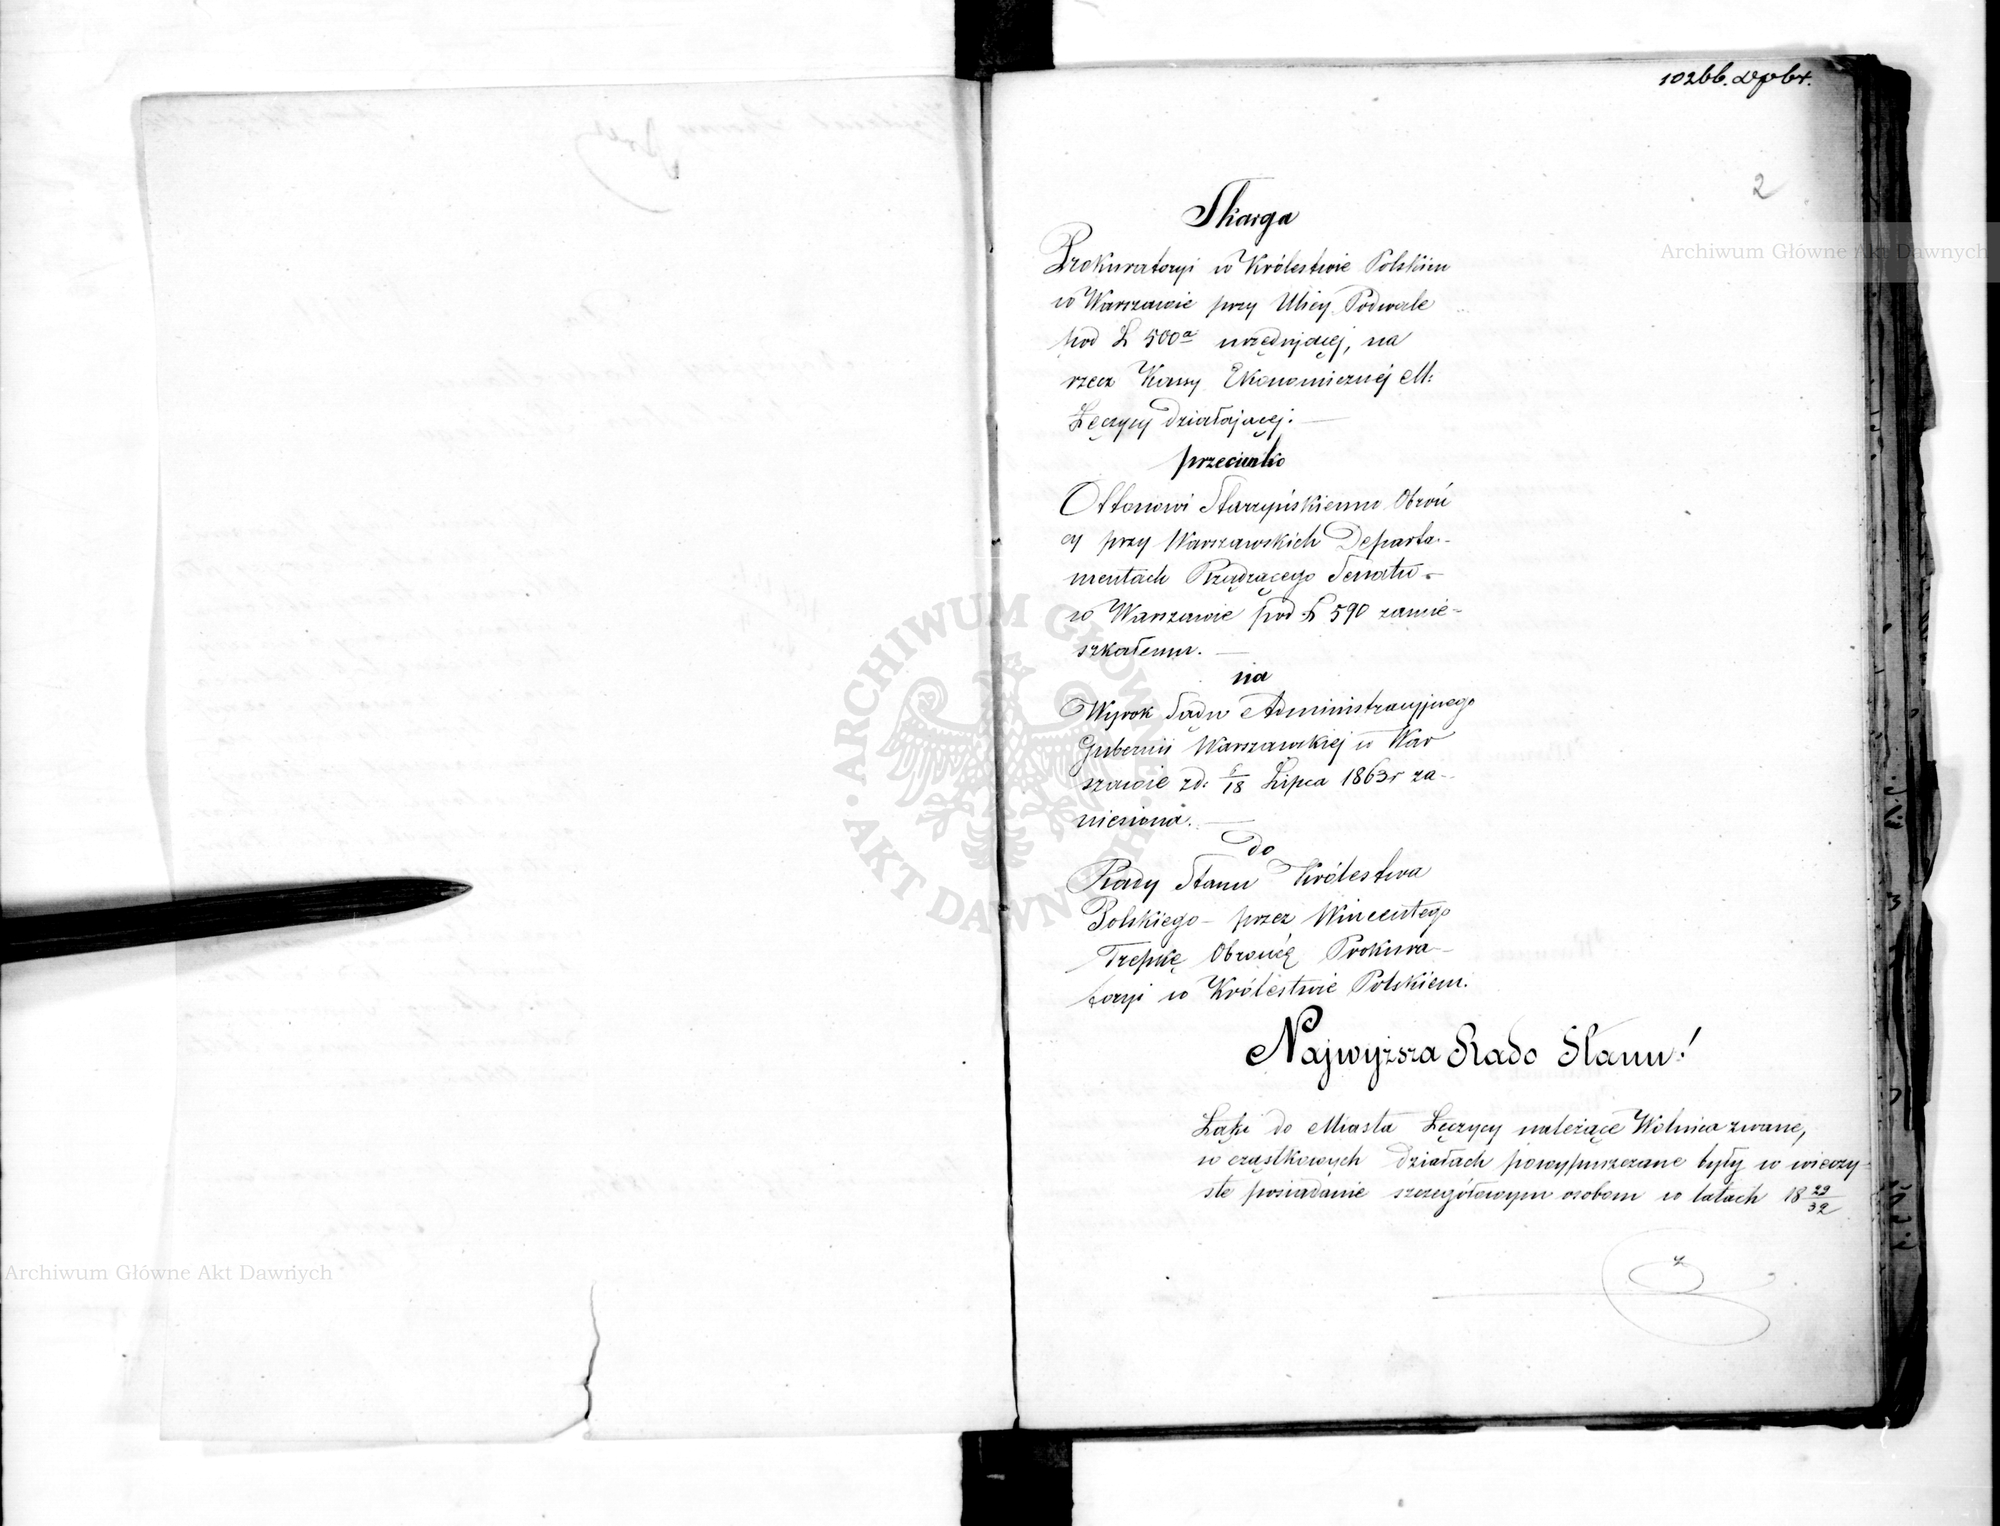 2
Skarga
Prokuratoryi w Królestwie Polskim
w Warszawie przy Ulicy Podwale
pod L 500a urzędującej, na
rzecz Kassy Ekonomicznéj M:
Łęczycy działającej. —
przeciwko
Ottonowi Starzyńskiemu Obroń
cy przy Warszawskich Departa-
mentach Rządzącego Senatu -
w Warszawie pod L 590 zamie-
szkałemu. —
na
Wyrok Sądu Administracyjnego
Gubernii Warszawskiej w War
szawie zd: 6/18 Lipca 1863r za-
niesiona. —
do
Rady Stanu Królestwa
Polskiego - przez Wincentego
Trepkę Obrońcę Prokura-
toryi w Królestwie Polskiem.
Najwyższa Rado Stanu!
Łąki do Miasta Łęczycy należące Wolnica zwane,
w cząstkowych działach powypuszczane były w wieczy-
ste posiadanie szczegółowym osobom w latach 18 29/32
Archiwum Główne Akt Dawnych
Archiwum Główne Akt Dawnych
ARCHIWUM GŁÓWNE AKT DAWNYCH